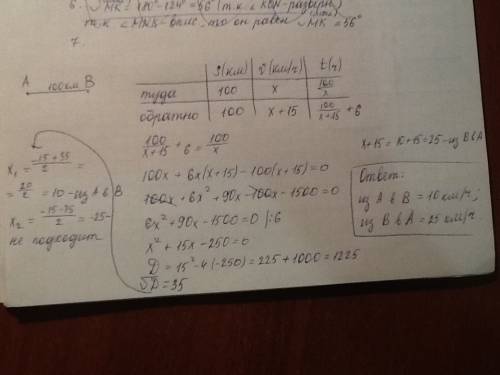 6. ◡MK = 180°-124° = 56° (т.к. ∠KON-разверн
т.к. ∠MNK-впис., то он равен ◡MK = 56°
7.
A 100км B
S(км) v(км/ч) t(ч)
туда 100 x 100/x
обратно 100 x+15 100/(x+15) + 6
100/(x+15) + 6 = 100/x
100x + 6x(x+15) - 100(x+15) = 0
100x + 6x² + 90x - 100x - 1500 = 0
6x² + 90x - 1500 = 0 |:6
x² + 15x - 250 = 0
D = 15² - 4(-250) = 225 + 1000 = 1225
√D = 35
x₁ = (-15+35)/2 =
= 20/2 = 10 - из A в B
x₂ = (-15-35)/2 = -25 -
не подходит
x+15 = 10+15 = 25 - из B в A
Ответ:
из A в B = 10 км/ч;
из B в A = 25 км/ч.